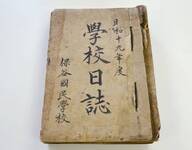 昭和十九年度
學校日誌
保谷國民學校